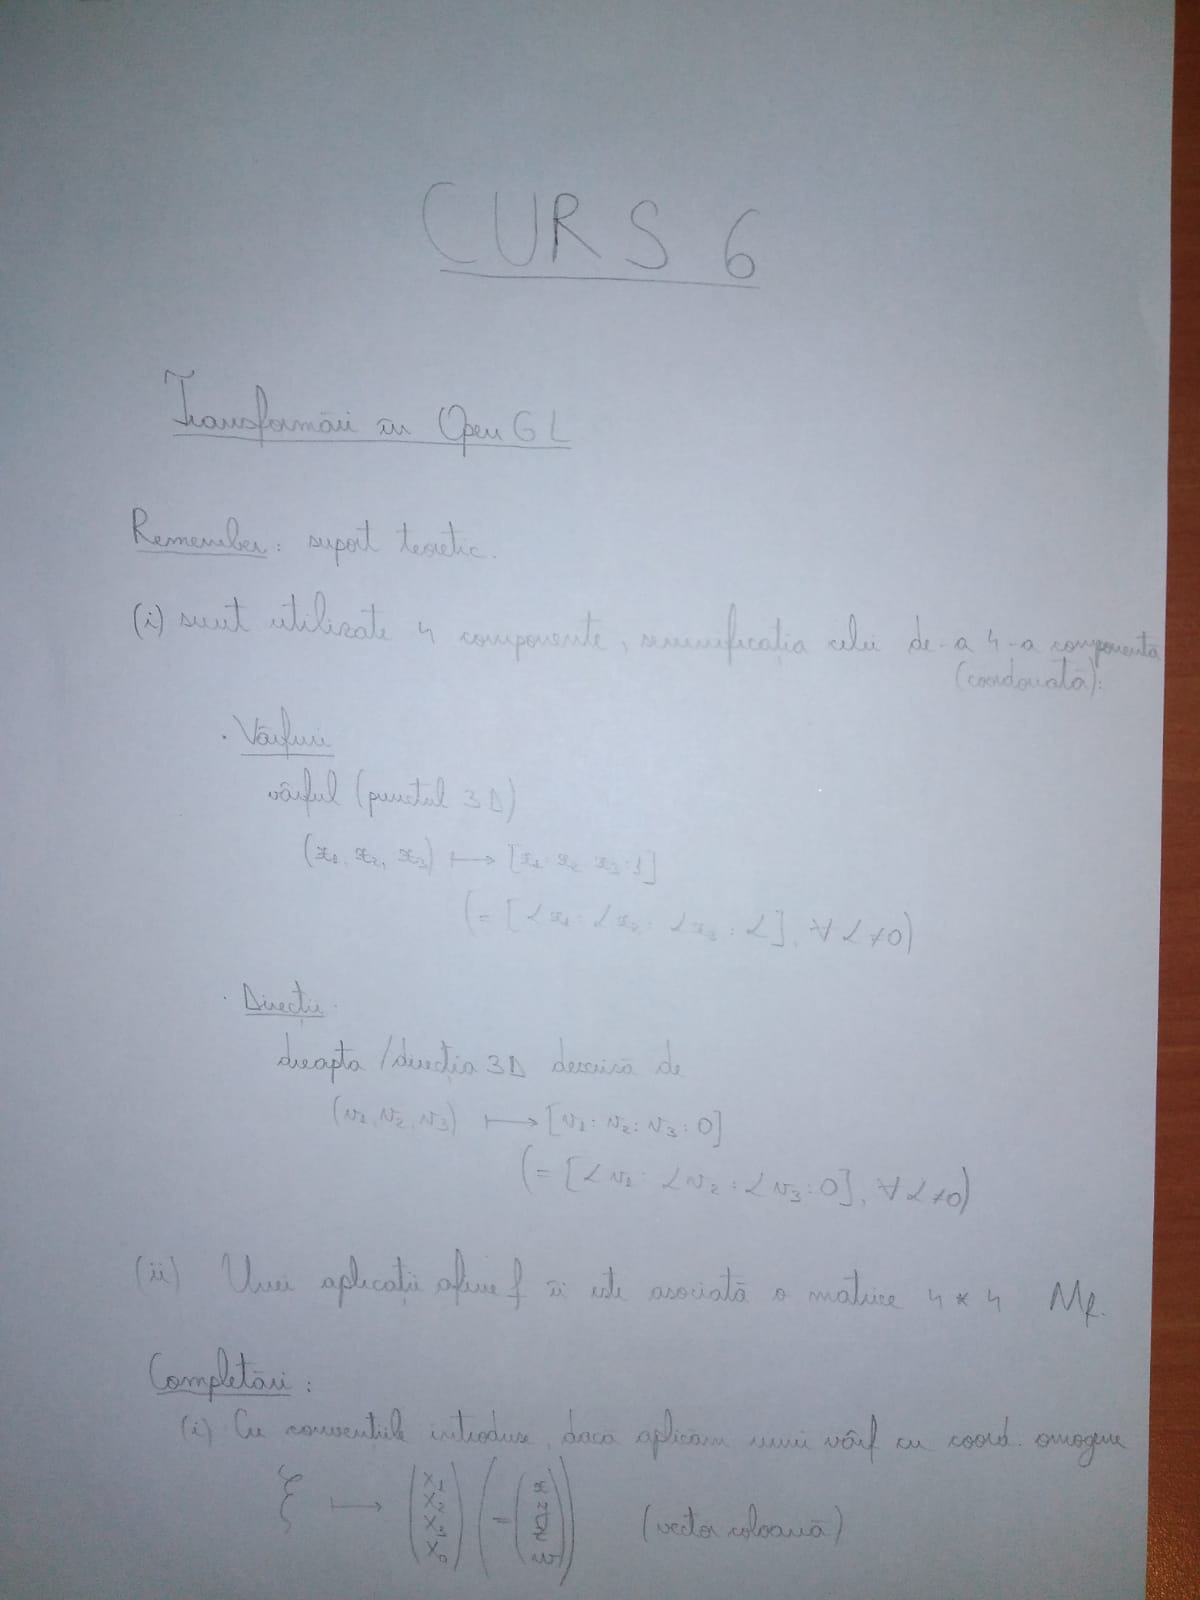 CURS 6
Transformări în OpenGL
Remember: suport teoretic.
(i) sunt utilizate 4 componente, semnificația celei de-a 4-a componentă
(coordonată):
• Vârfuri
vârful (punctul 3D)
(x₁, x₂, x₃) ⟼ [x₁ : x₂ : x₃ : 1]
(= [αx₁ : αx₂ : αx₃ : α], ∀ α ≠ 0)
• Direcții
dreapta / direcția 3D descrisă de
(v₁, v₂, v₃) ⟼ [v₁ : v₂ : v₃ : 0]
(= [αv₁ : αv₂ : αv₃ : 0], ∀ α ≠ 0)
(ii) Unei aplicații afine f îi este asociată o matrice 4 × 4 M_f.
Completări :
(i) Cu convențiile introduse, dacă aplicăm unui vârf cu coord. omogene
ξ ⟼ (x₁ x₂ x₃ x₀) (= (x y z w)) (vector coloană)